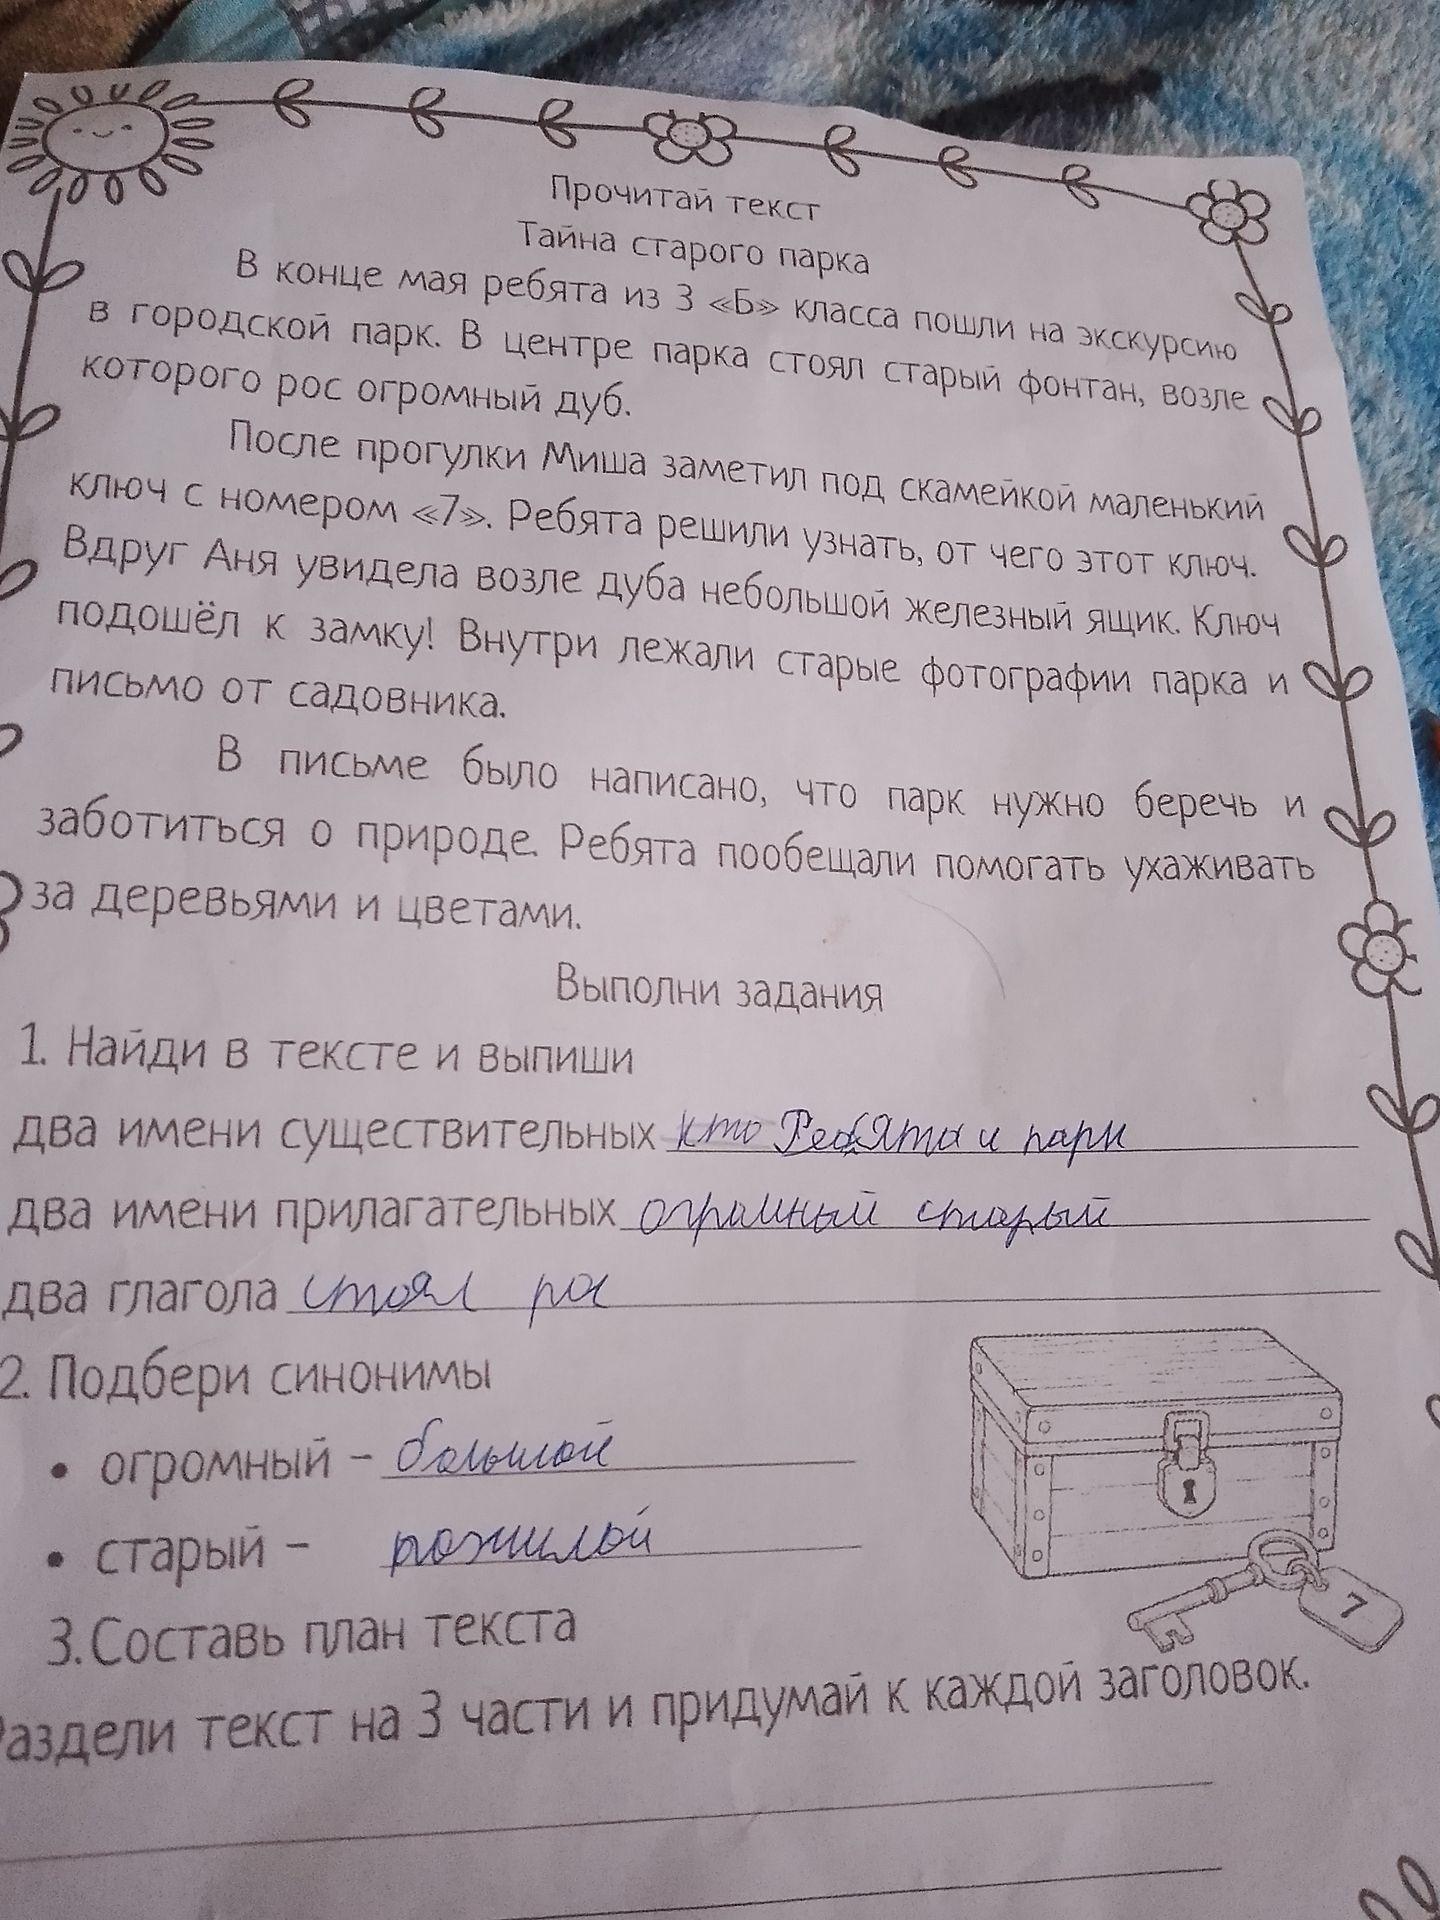 Прочитай текст
Тайна старого парка
В конце мая ребята из 3 «Б» класса пошли на экскурсию
в городской парк. В центре парка стоял старый фонтан, возле
которого рос огромный дуб.
После прогулки Миша заметил под скамейкой маленький
ключ с номером «7». Ребята решили узнать, от чего этот ключ.
Вдруг Аня увидела возле дуба небольшой железный ящик. Ключ
подошёл к замку! Внутри лежали старые фотографии парка и
письмо от садовника.
В письме было написано, что парк нужно беречь и
заботиться о природе. Ребята пообещали помогать ухаживать
за деревьями и цветами.
Выполни задания
1. Найди в тексте и выпиши
два имени существительных кто Ребята и парк
два имени прилагательных огромный старый
два глагола стоял рос
2. Подбери синонимы
• огромный – большой
• старый – пожилой
7
3. Составь план текста
Раздели текст на 3 части и придумай к каждой заголовок.